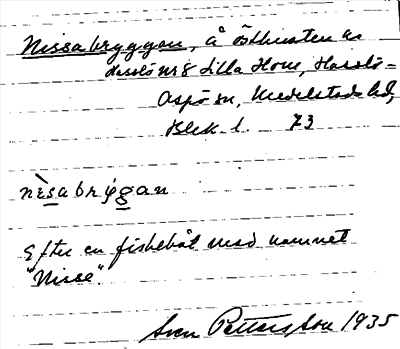 Nissabryggan, å östkusten av
Hasslö nr 8 Lilla Horn, Hasslö-
Aspö sn, Medelstads hd,
Blek. l. 73
nèsabrýgan
Efter en fiskebåt med namnet
"Nisse".
Sven Pettersson 1935